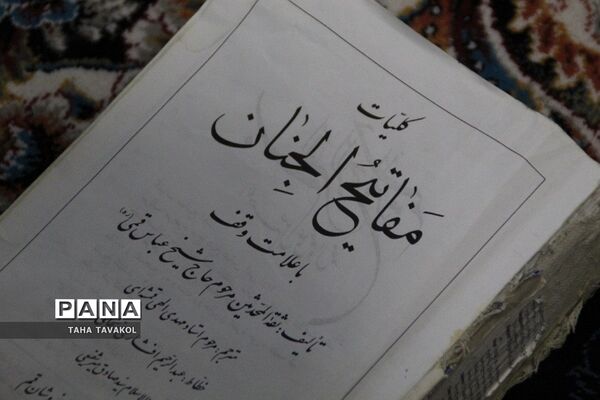 کلیات
مَفاتیحُ الجِنان
با علامت وقف
تألیف: ثقة المحدثین مرحوم حاج شیخ عباس قمی (ره)
مترجم: مرحوم استاد مهدی الهی قمشه‌ای
خطاط: عبدالرحیم افشاری
PANA
TAHA TAVAKOL